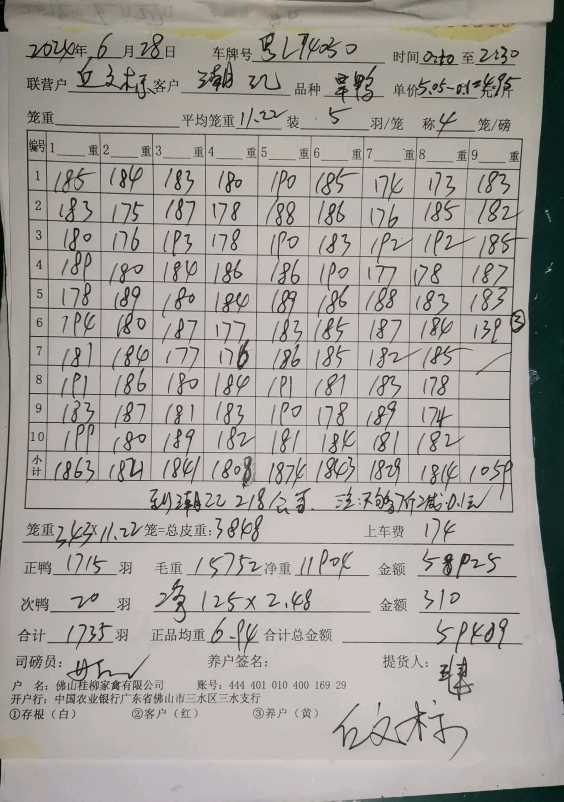 2024年6月28日 车牌号 粤L94050 时间 0:30 至 2:30
联营户 丘文标 客户 品种 单鸭 单价 5.05-0.1=4.95 元/斤
笼重 平均笼重 11.22 装 5 羽/笼 称 4 笼/磅
编号 1 重 2 重 3 重 4 重 5 重 6 重 7 重 8 重 9 重
1 185 184 183 180 190 185 174 173 183
2 183 175 187 178 188 186 176 185 182
3 180 176 193 178 190 183 192 192 185
4 189 180 184 186 186 190 177 178 187
5 178 189 180 184 189 186 188 183 183
6 194 180 187 177 183 185 187 184 139 ③
7 181 184 177 176 186 185 182 185
8 191 186 180 184 191 181 183 178
9 183 187 181 183 190 178 189 174
10 199 180 189 182 181 184 181 182
小计 1863 1821 1841 1808 1874 1843 1829 1814 1059
218 公里
笼重 343×11.22 笼=总皮重: 3848 上车费 174
正鸭 1715 羽 毛重 15752 净重 11904 金额 58925
次鸭 20 羽 净 125×2.48 金额 310
合计 1735 羽 正品均重 6.94 合计总金额 59409
司磅员: 养户签名: 提货人:
户 名: 佛山桂柳家禽有限公司 账号: 444 401 010 400 169 29
开户行: 中国农业银行广东省佛山市三水区三水支行
①存根（白） ②客户（红） ③养户（黄）
丘文标